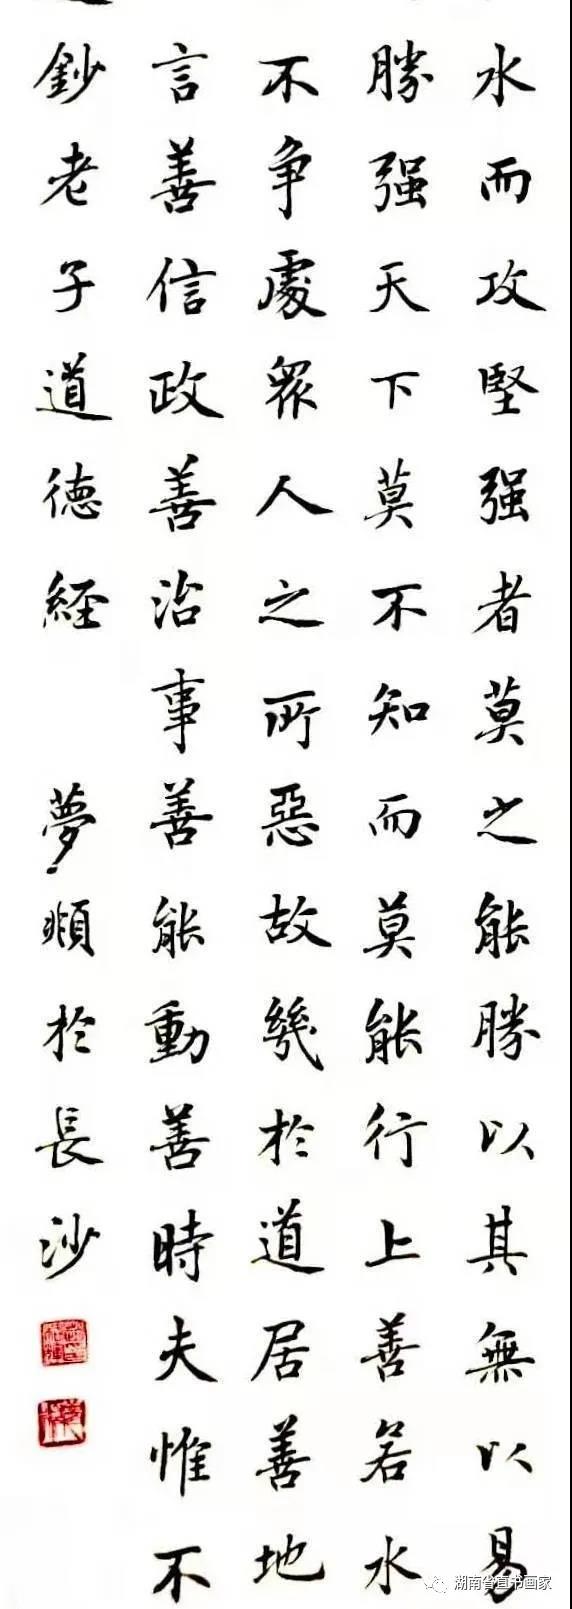 水而攻堅强者莫之能勝以其無以易
勝强天下莫不知而莫能行上善若水
不争處衆人之所惡故幾於道居善地
言善信政善治事善能動善時夫惟不
鈔老子道德經 夢頫於長沙
湖南省直书画家